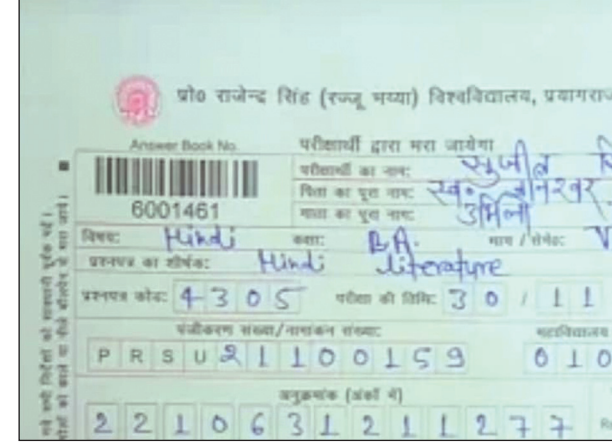 प्रो० राजेन्द्र सिंह (रज्जू भय्या) विश्वविद्यालय, प्रयागराज
Answer Book No. परीक्षार्थी द्वारा भरा जायेगा
परीक्षार्थी का नाम: सुजीत
6001461 पिता का पूरा नाम: स्व०
माता का पूरा नाम: उर्मिला
विषय: Hindi कक्षा: B.A. भाग / सेमे०: V
प्रश्नपत्र का शीर्षक: Hindi literature
प्रश्नपत्र कोड: 4 3 0 5 परीक्षा की तिथि: 3 0 / 1 1
पंजीकरण संख्या/नामांकन संख्या: महाविद्यालय
P R S U 2 1 1 0 0 1 5 9 0 1 0
अनुक्रमांक (अंकों में)
2 2 1 0 6 3 1 2 1 1 2 7 7